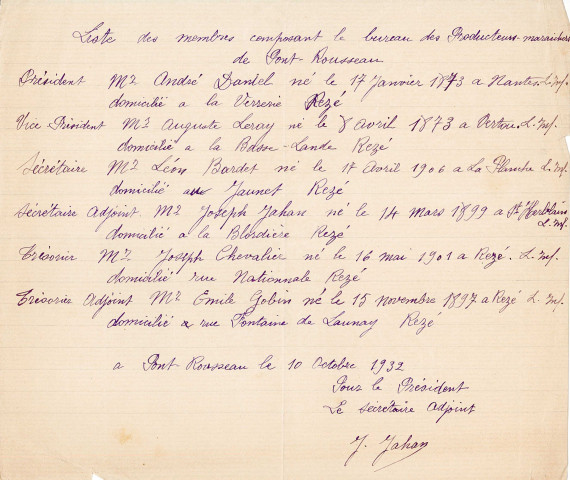 Liste des membres composant le bureau des Producteurs-maraichers
de Pont-Rousseau
Président Mr André Daniel né le 17 Janvier 1873 a Nantes L. Inf.
domicilié a la Verrerie Rezé
Vice-Président Mr Auguste Leray né le 8 Avril 1873 a Vertou L. Inf.
domicilié a la Basse-Lande Rezé
Sécrétaire Mr Léon Bardet né le 17 Avril 1906 a La Planche L. Inf.
domicilié au Jaunet Rezé
Sécrétaire Adjoint Mr Joseph Jahan né le 14 Mars 1899 a St Herblain
L. Inf.
domicilié a la Blordière Rezé
Trésorier Mr Joseph Chevalier né le 16 mai 1901 a Rezé L. Inf.
domicilié rue Nationnale Rezé
Trésorier Adjoint Mr Emile Gobin né le 15 novembre 1897 a Rezé L. Inf.
domicilié rue Fontaine de Launay Rezé
a Pont Rousseau le 10 Octobre 1932
Pour le Président
Le sécrétaire adjoint
J. Jahan